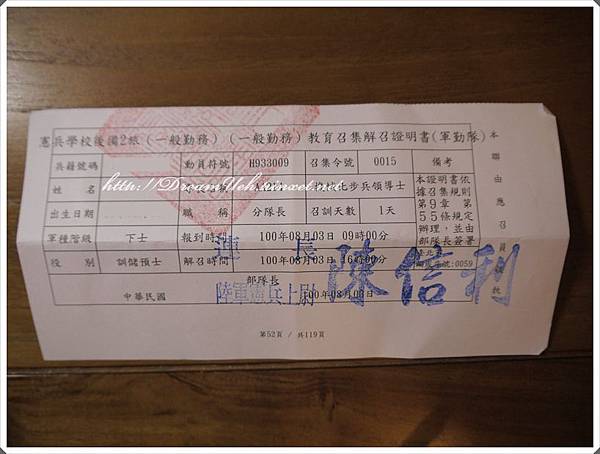 憲兵學校後備2旅(一般勤務)(一般勤務)教育召集解召證明書(軍勤隊)
兵籍號碼 動員符號 H933009 召集令號 0015 備考
姓名 步兵領導士
出生日期 職稱 分隊長 召訓天數 1天
軍種階級 下士 報到時間 100年08月03日 09時00分
役別 訓儲預士 解召時間 100年08月03日 16時00分
本證明書依
據召集規則
第9章 第
55條規定
辦理,並由
部隊長簽署
:0059
部隊長
中華民國 100年08月03日
連長 陳信利
陸軍憲兵上尉
第52頁 / 共119頁
本聯由應召員